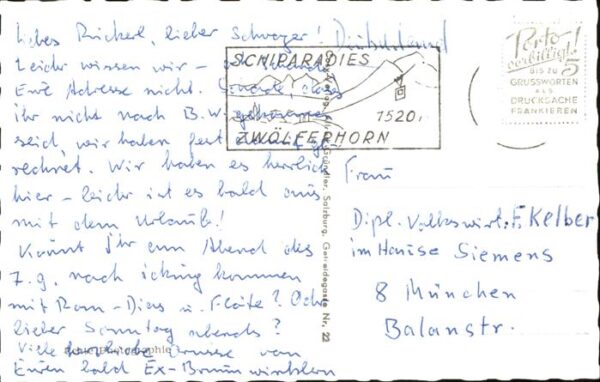 Liebes Rickerl, lieber Schwager!
Leider wissen wir –
Eure Adresse nicht. Schade, dass
ihr nicht nach B.W. gekommen
seid, wir haben fest
rechnet. Wir haben es herrlich
hier – leider ist es bald aus
mit dem Urlaub!
Könnt Ihr am Abend des
7.9. nach Icking kommen
mit Rom-Dias u. Flöte? Oder
lieber Sonntag abends?
Viele herzliche Grüsse von
Euren bald Ex-
Deutschland
SCHIPARADIES
1520
ZWÖLFERHORN
Porto
verbilligt!
BIS ZU
5
GRUSSWORTEN
ALS
DRUCKSACHE
FRANKIEREN
Salzburg, Getreidegasse Nr. 22
Frau
Dipl. Volkswirt. F. Kelber
im Hause Siemens
8 München
Balanstr.